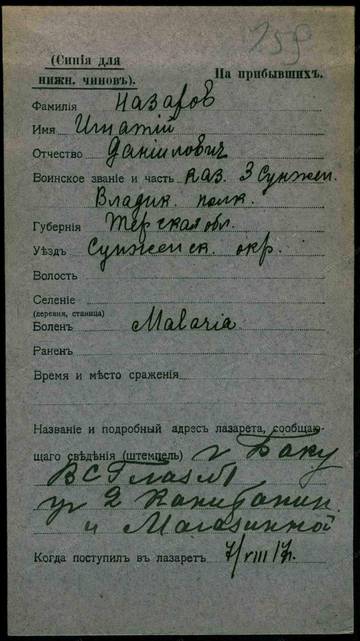 159
(Синія для
нижн. чиновъ).
На прибывшихъ.
Фамилія Назаров
Имя Игнатій
Отчество Даніилович
Воинское званіе и часть каз. 3 Сунжен.
Владик. полк.
Губернія Терская обл.
Уѣздъ Сунженск. окр.
Волость
Селеніе
(деревня, станица)
Боленъ Malaria
Раненъ
Время и мѣсто сраженія
Названіе и подробный адресъ лазарета, сообщаю-
щаго свѣдѣнія (штемпель) г Баку
ВСГ
уг 2
и Магазинной
Когда поступилъ въ лазаретъ 7/VIII 17г.